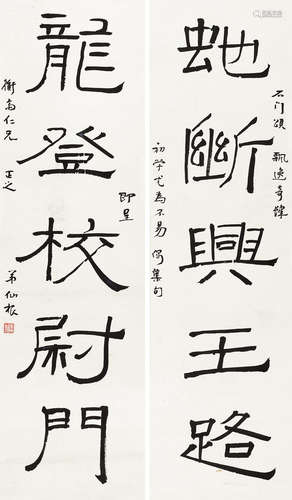 石门頌 飄逸奇
虵斷興王路
初學尤為不易 偶集句
即呈
龍登校尉門
衡高仁兄 正之
弟仙根